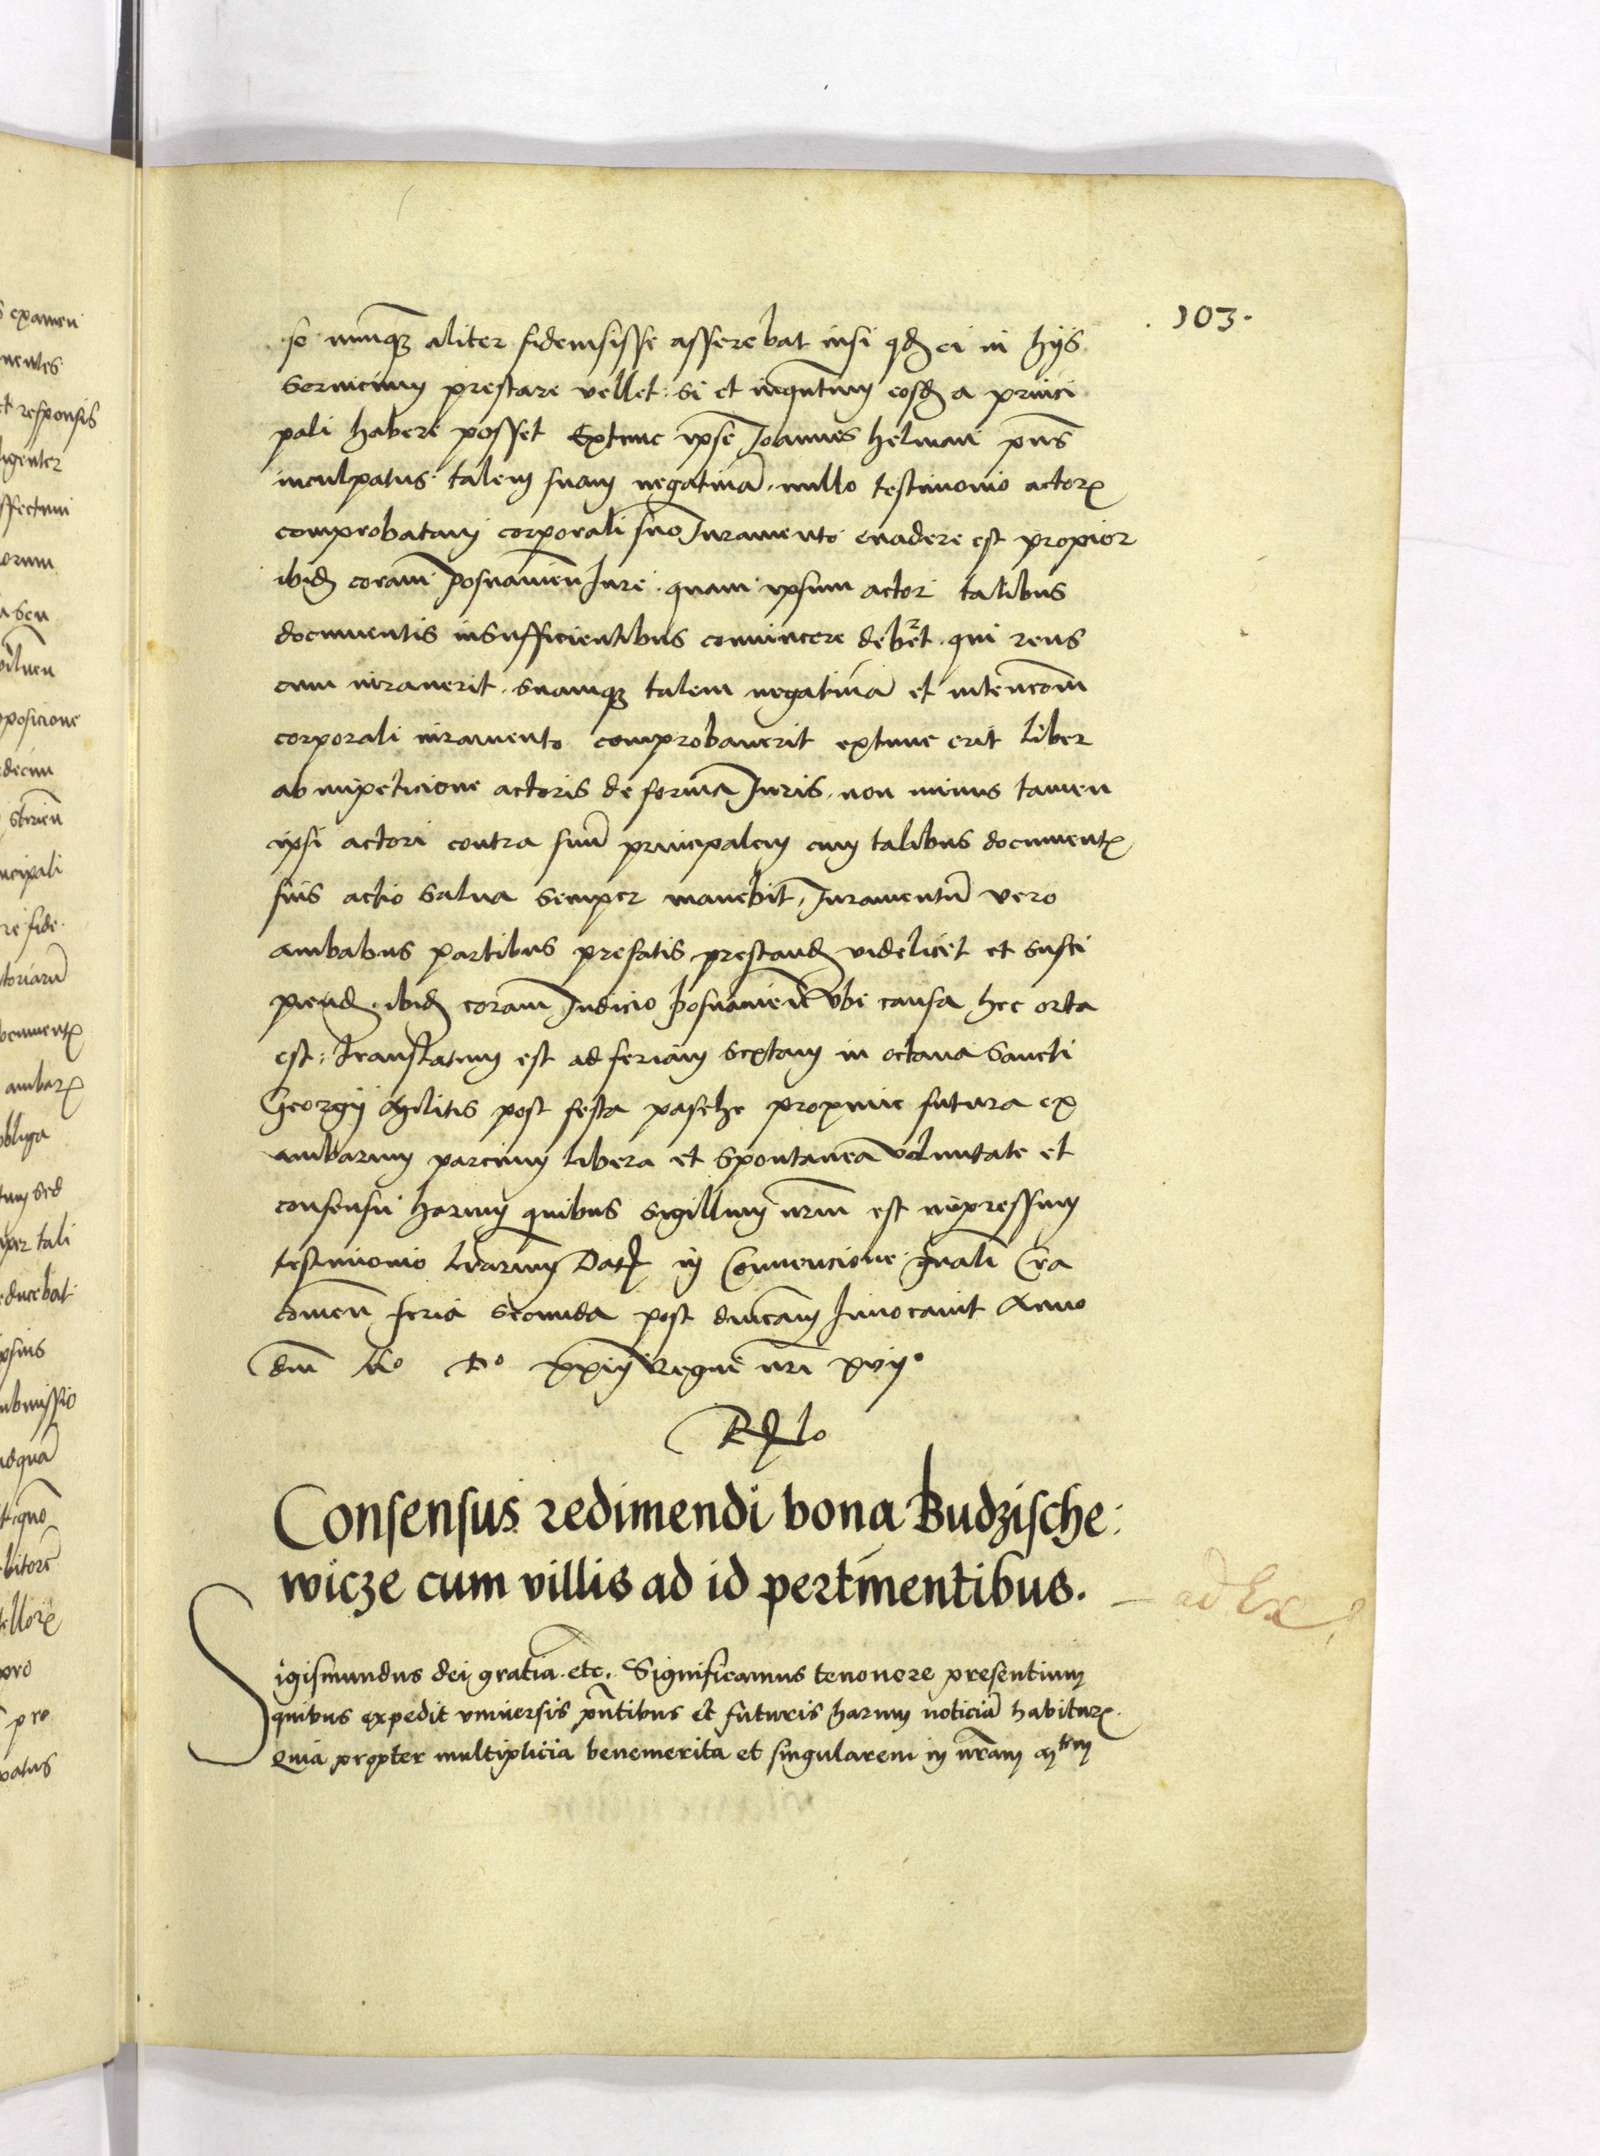 103.
se nunq̃ aliter fideiusisse asserebat nisi qd ei in hijs
seruicium prestare vellet. Si et inquantum eosd a princi
pali habere posset Extunc ipse Joannes helman pñs
inculpatus talem suam negatiuã. nullo testimonio actor
comprobatam corporali suo Juramento euadere est propior
ibid coram posnanien Jure. quam ipsum actor talibus
documentis insufficientibus conuincere deberet. qui reus
cum iurauerit. suamq; talem negatiuã et intencõem
corporali iuramento comprobauerit extunc erit liber
ab impeticione actoris de forma Juris. non minus tamen
ipsi actori contra suũ principalem cum talibus document
suis actio salua semper manebit, Juramentũ vero
ambabus partibus prefatis prestand videlicet et susci
piend. ibid coram Judicio posnanien vbi causa hec orta
est: translatum est ad feriam sextam in octaua Sancti
Georgij Militis post festa pasche proxime futura ex
ambarum parcium libera et spontanea voluntate et
consensu harum quibus sigillum nrm est impressum
testimonio lrarum Dat in Conuencione gñali Cra
couien feria secunda post dnicam Inuocauit Anno
dni Mo Do xxiij Regni nri xvijo
Rlo
Consensus redimendi bona Budzische:
wicze cum villis ad id pertinentibus.
Sigismundus dei gratia. etc. Significamus tenonore presentium
quibus expedit vniuersis pñtibus et futuris harum noticiã habitur.
Quia propter multiplicia benemerita et singularem in nrãm
examen
nentes
et responsis
ligenter
ffectum
orum
posicione
ncipali
re fide.
toriarũ
ambar
obliga
tum sed
per tali
educebat
psius
ubmissio
bitorẽ
pro
pro
patus